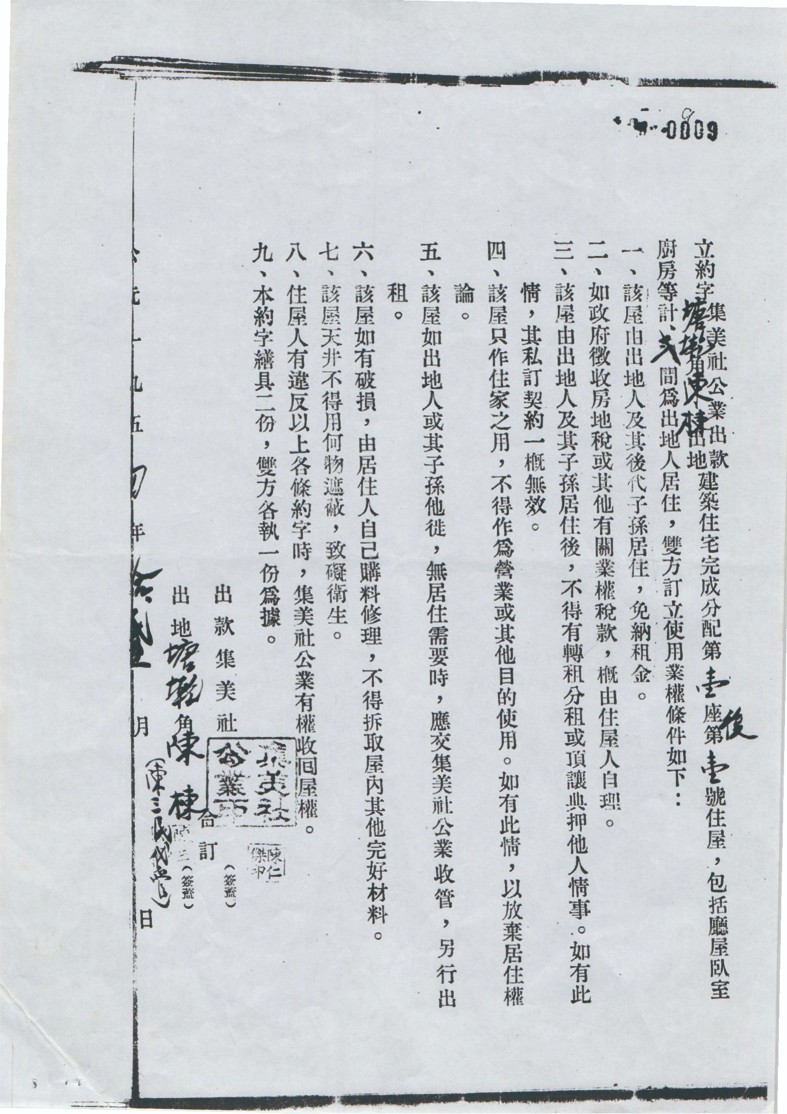 0009
立約字集美社公業出款
塘墘角陳棟出地建築住宅完成分配第壹座第壹號住屋，包括廳屋臥室
後
廚房等計弍間爲出地人居住，雙方訂立使用業權條件如下：
一、該屋由出地人及其後代子孫居住，免納租金。
二、如政府徵收房地稅或其他有關業權稅款，槪由住屋人自理。
三、該屋由出地人及其子孫居住後，不得有轉租分租或頂讓典押他人情事。如有此
情，其私訂契約一槪無效。
四、該屋只作住家之用，不得作爲營業或其他目的使用。如有此情，以放棄居住權
論。
五、該屋如出地人或其子孫他徙，無居住需要時，應交集美社公業收管，另行出
租。
六、該屋如有破損，由居住人自己購料修理，不得拆取屋內其他完好材料。
七、該屋天井不得用何物遮蔽，致礙衛生。
八、住屋人有違反以上各條約字時，集美社公業有權收囘屋權。
九、本約字繕具二份，雙方各執一份爲據。
出款集美社
集美社公業
陳仁傑印
（簽蓋）
合訂
出地塘墘角陳棟
（簽蓋）
（陳三民代筆）
公元一九五四年 月 日